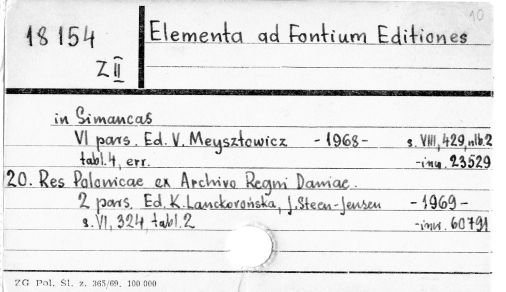 10
18154 Elementa ad Fontium Editiones
Z II
in Simancas
VI pars. Ed. V. Meysztowicz - 1968 - s. VIII, 429, nlb. 2
tabl. 4, err. - inw. 23529
20. Res Polonicae ex Archivo Regni Daniae.
2 pars. Ed. K. Lanckorońska, J. Steen-Jensen - 1969 -
s. VI, 324, tabl. 2 - inw. 60791
ZG Pol. Śl. z. 365/69. 100 000